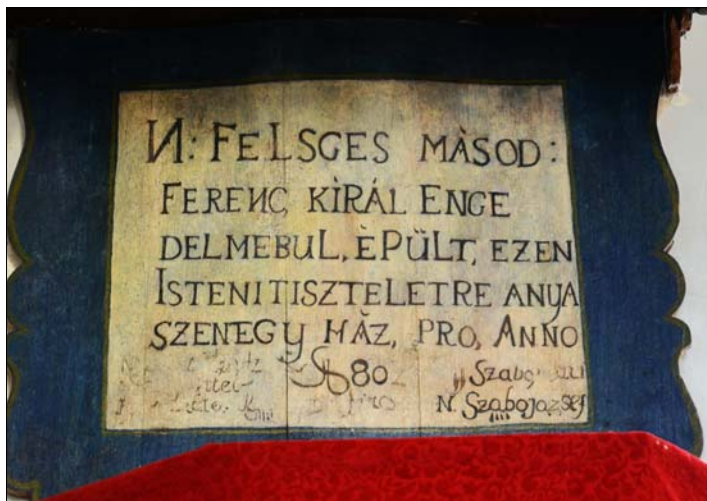 N: FELSGES MÀSOD:
FERENC, KÌRÁL ENGE
DELMEBUL, ÈPÜLT, EZEN
ISTENI TISZTELETRE ANYA
SZENEGY HÁZ, PRO, ANNO
80
N. Szabojozsef